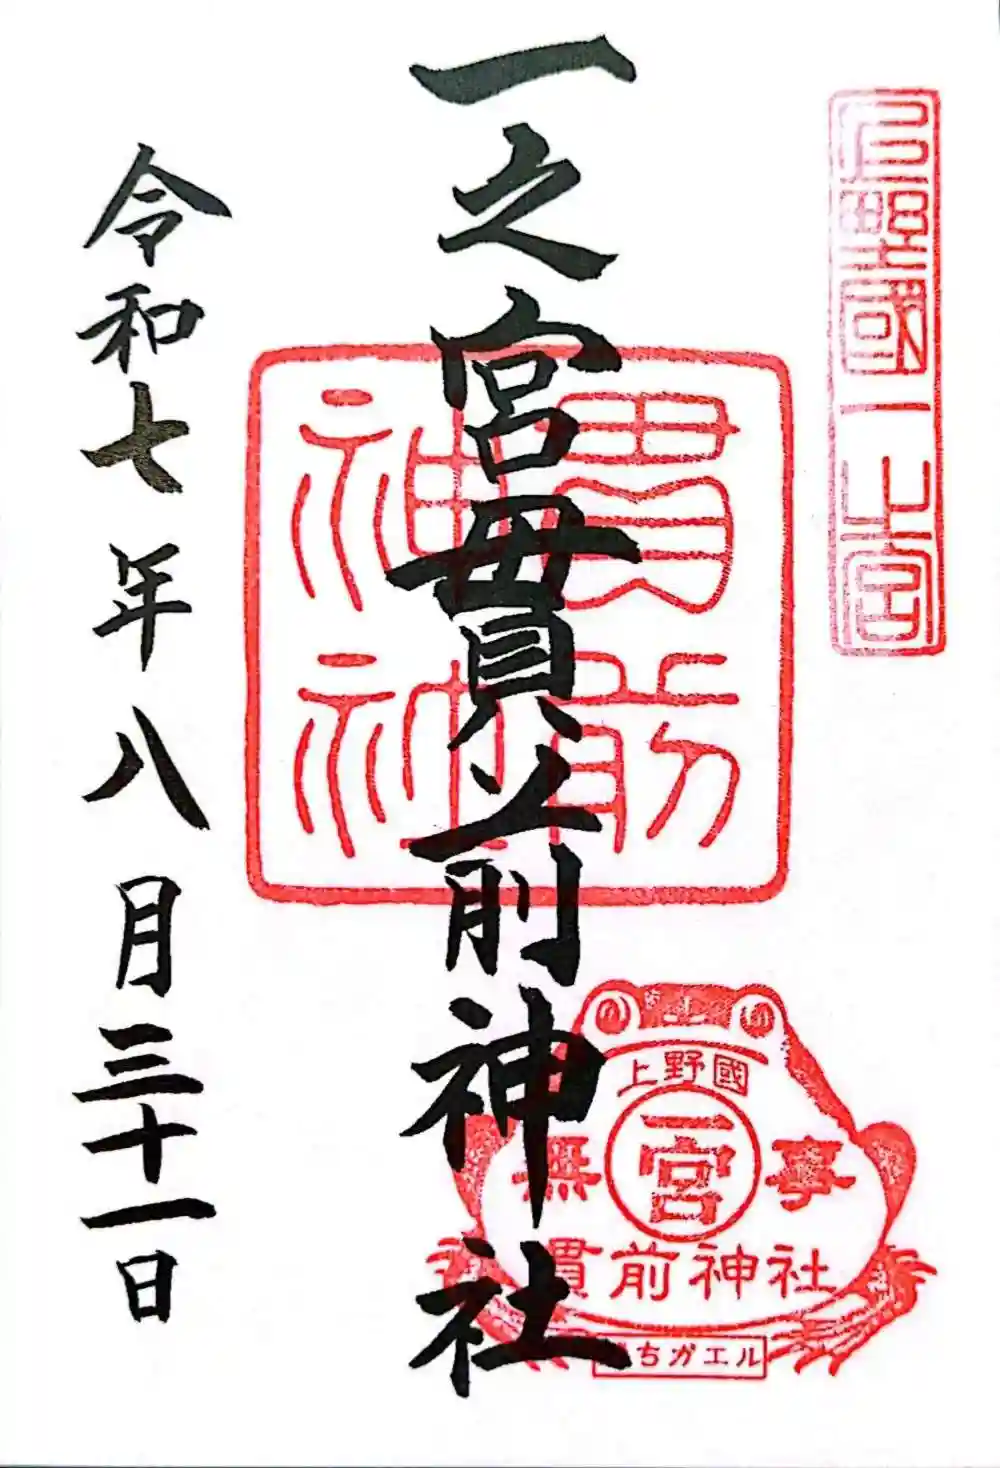 上野國一之宮
一之宮貫前神社
貫前
神社
令和七年八月三十一日
上野國
一宮
無事
貫前神社
ちガエル